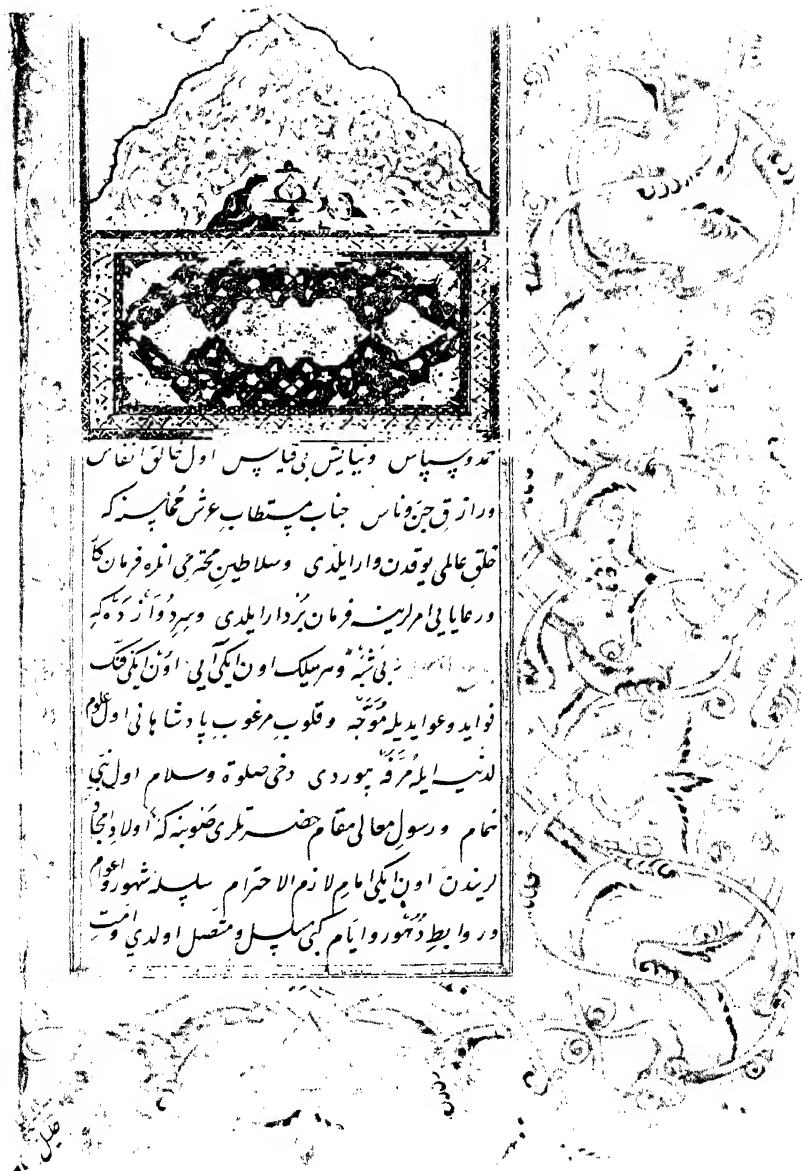 حمد و سپاس و نیایش بی قیاس اول خالق انفاس
و رازق جن و ناس جناب مستطاب عرش مماسنه که
خلق عالمی یوقدن وار ایلدی و سلاطین محترمی انلره فرمان
و رعایایی امرلرینه فرمان بُردار ایلدی و سپهر دوازده که
بی شبه و هر میلک اون ایکی آیی اون ایکی فلک
فواید و عواید یله مُوَجّه و قلوب مرغوب پادشاهانی اول علوم
لدنیه ایله مُرَفّه بیوردی دخی صلوة و سلام اول نبیّ
تمام و رسول معالی مقام حضرتلری صوبنه که اولاد امجاد
لریندن اون ایکی امام لازم الاحترام سلسلهٔ شهور و اعوام
و روابط دُهور و ایام کبی مسلسل و متصل اولدی و امّتِ